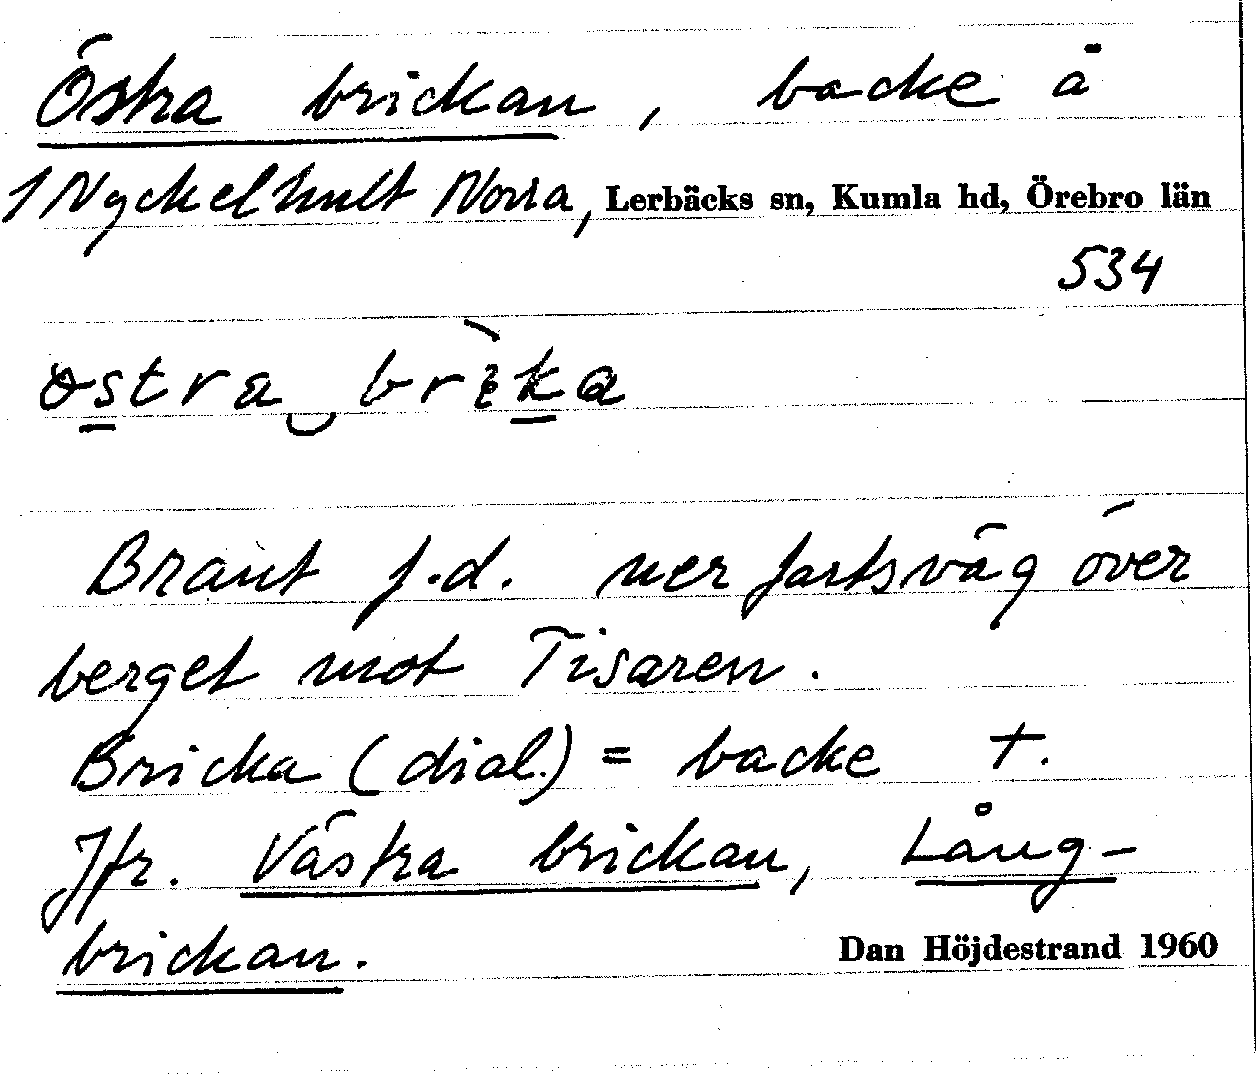 Östra brickan, backe å
1 Nyckelhult Norra, Lerbäcks sn, Kumla hd, Örebro län
534
Brant f.d. nerfartsväg över
berget mot Tisaren.
Bricka (dial.) = backe †.
Jfr. Västra brickan, Lång-
brickan.
Dan Höjdestrand 1960